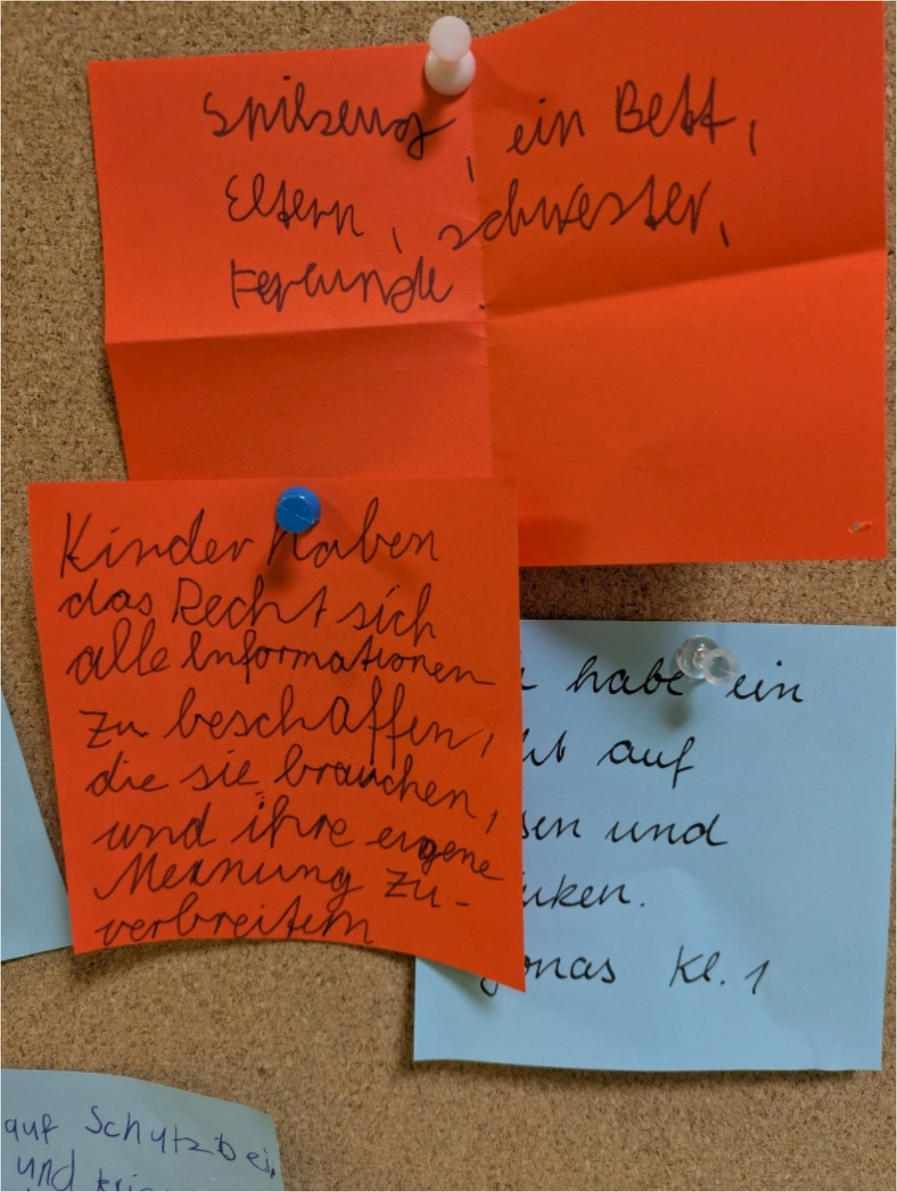 Spilzeug, ein Bett,
Eltern, schwester,
Fereunde.
Kinder haben
das Recht sich
alle Informationen
zu beschaffen,
die sie brauchen,
und ihre eigene
Meinung zu-
verbreitem
habe ein
auf
und
Jonas Kl. 1
auf Schutz bei
und